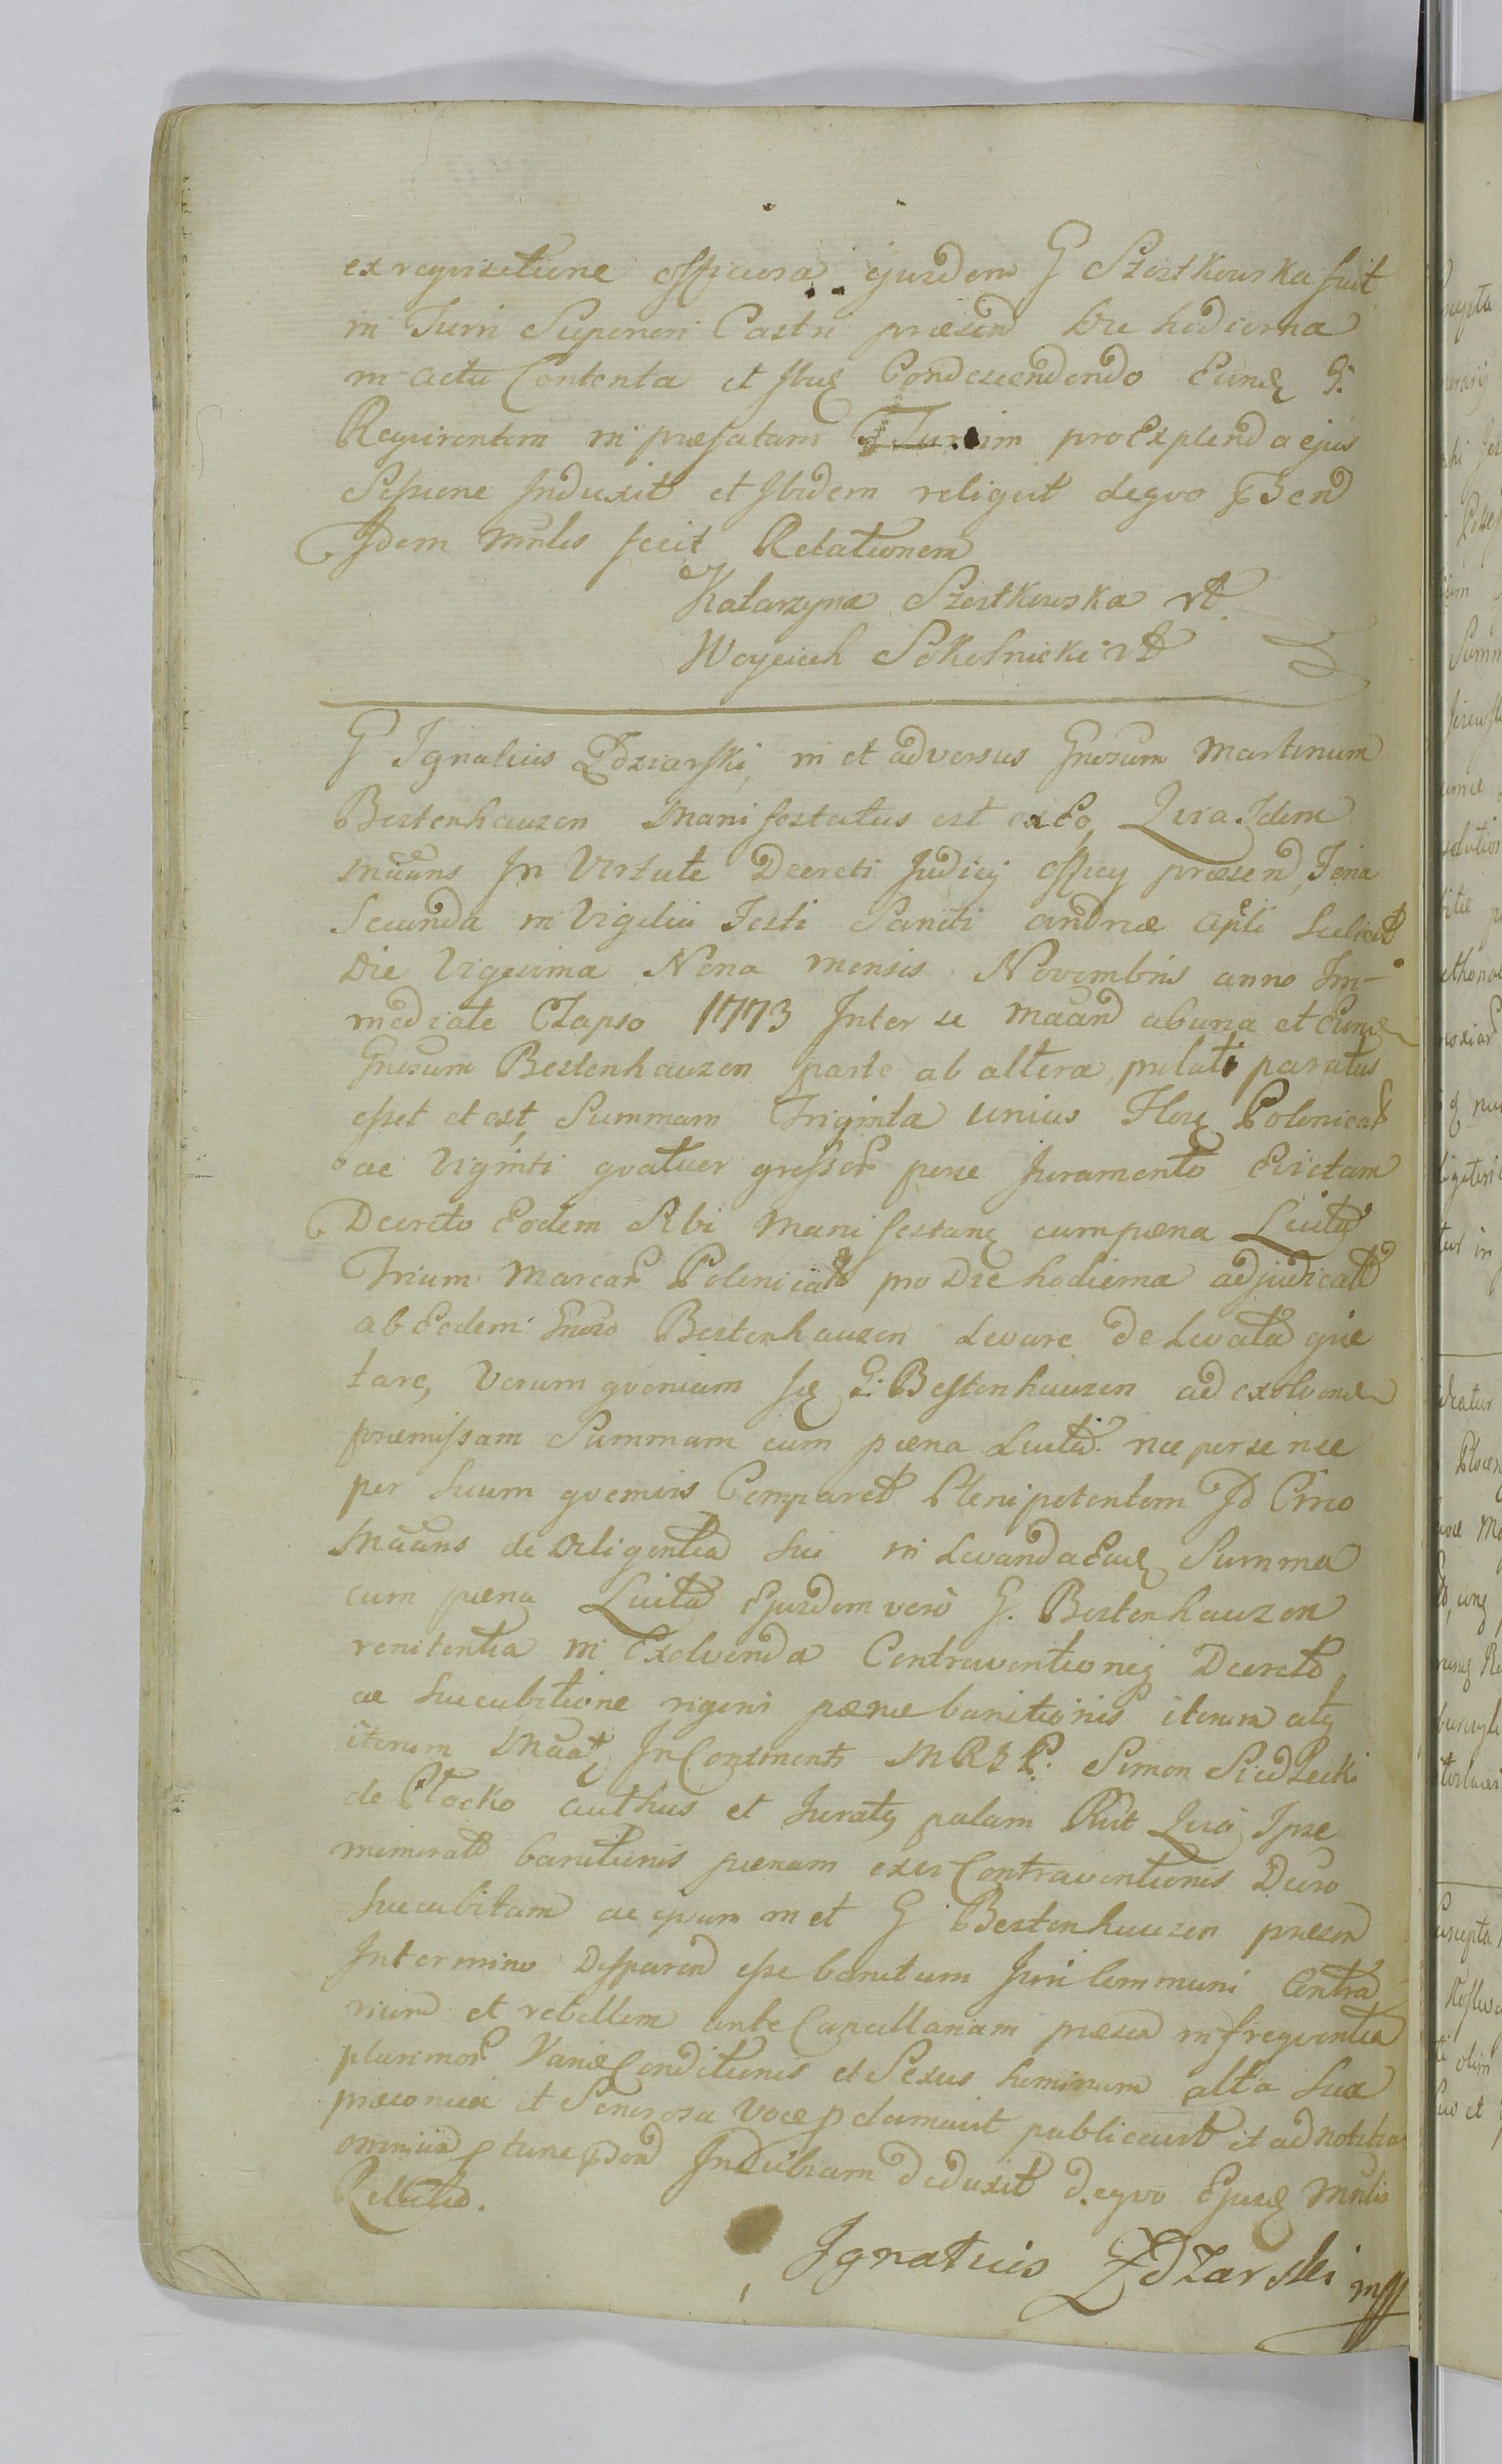 ex requisitione officiosa ejusdem G Szostkowska fuit
in Turri Superiori Castri præsen die hodierna
in actu Contenta et Condescendendo Eund G.
Requirentem in præfatam Turrim pro Explenda ejus
Sessione Induxit et Ibidem reliquit de quo
Idem Mnlis fecit Relationem
Katarzyna Szostkowska
Woyciech Sokolnicki
G Ignatius Zdziarski in et adversus Gnosum Martinum
Bestenhauzen Manifestatus est ex Eo, Quia Idem
Maans In Virtute Decreti Judicij Officij præsen, Feria
Secunda in Vigilia Festi Sancti Andreæ Apli Scilicet
Die Vigesima Nona mensis Novembris anno Im-
mediate Elapso 1773 Inter se Maan ab una et Eund
Gnosum Bestenhauzen parte ab altera, prolati paratus
esset et est, Summam Triginta unius Flor Polonical
ac Viginti quatuor grossor Juramento Evictam
Decreto Eodem Sibi Manifestan cum pœna Luita
Trium Marcar Polonicał pro Die hodierna adjudicat
ab Eodem Gnoso Bestenhauzen Levare de Levata quie
tare, Verum quoniam G. Bestenhauzen ad exolvend
præmissam Summam cum pœna Luita nec per se nec
per Suum quemvis Comparet Plenipotentem
Maans de Diligentia Sui in Levanda Summa
cum pœna Luita Ejusdem vero G. Bestenhauzen
renitentia in Exolvenda Contraventioneq Decreto
ac Succubitione rigoris pœnæ banitionis iterum atq
iterum Maat, In Continenti Simon Siedlecki
de Płocko authus et Juratq palam Quia Ipse
memorat banitionis pœnam ex Contraventionis
Succubitam ac ipsummet G Bestenhauzen præsen
In termino Disparen esse banitum Juri Communi Contra
rium et rebellem ante Cancellariam præsen in frequentia
plurimor Variæ Conditionis et Sexus hominum alta Sua
præconica et Sonorosa Voce pclamavit publicavit et ad notitia
omnium tunc Indubiam deduxit de quo Ejusd Mnlis
Relatio.
Ignatius Zdzarski mp